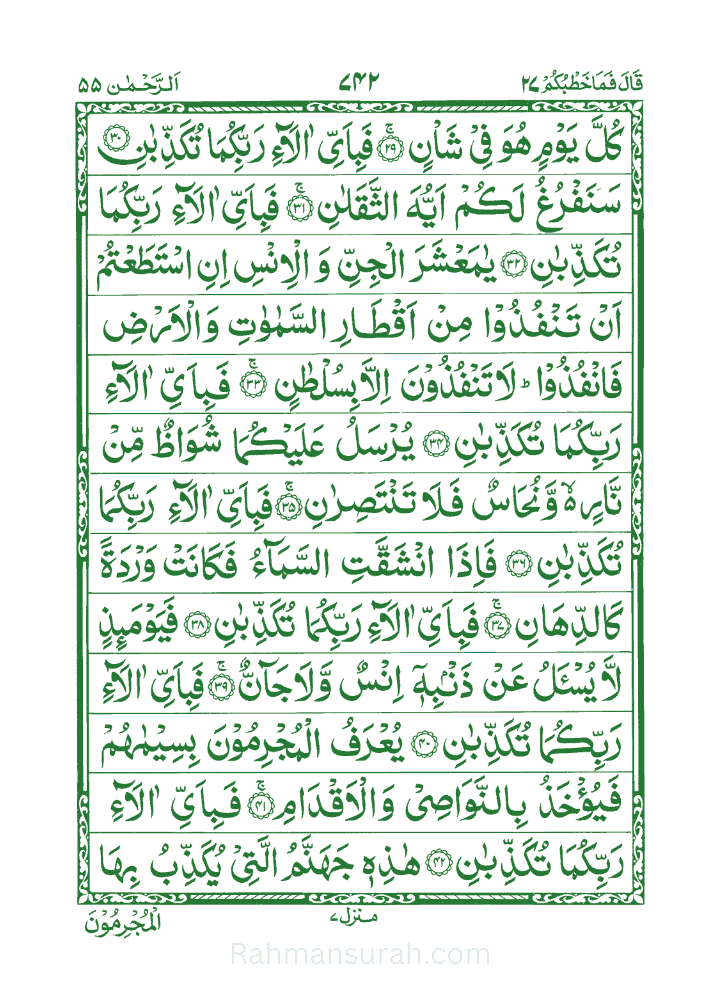 قَالَ فَمَا خَطْبُكُمْ ٢٧ ٧٤٢ اَلرَّحْمٰن ٥٥
كُلَّ يَوْمٍ هُوَ فِيْ شَاْنٍ ۚ ٢٩ فَبِاَيِّ اٰلَآءِ رَبِّكُمَا تُكَذِّبٰنِ ٣٠
سَنَفْرُغُ لَكُمْ اَيُّهَ الثَّقَلٰنِ ۚ ٣١ فَبِاَيِّ اٰلَآءِ رَبِّكُمَا
تُكَذِّبٰنِ ٣٢ يٰمَعْشَرَ الْجِنِّ وَ الْاِنْسِ اِنِ اسْتَطَعْتُمْ
اَنْ تَنْفُذُوْا مِنْ اَقْطَارِ السَّمٰوٰتِ وَ الْاَرْضِ
فَانْفُذُوْا ؕ لَا تَنْفُذُوْنَ اِلَّا بِسُلْطٰنٍ ۚ ٣٣ فَبِاَيِّ اٰلَآءِ
رَبِّكُمَا تُكَذِّبٰنِ ٣٤ يُرْسَلُ عَلَيْكُمَا شُوَاظٌ مِّنْ
نَّارٍ ۵ وَّ نُحَاسٌ فَلَا تَنْتَصِرٰنِ ۚ ٣٥ فَبِاَيِّ اٰلَآءِ رَبِّكُمَا
تُكَذِّبٰنِ ٣٦ فَاِذَا انْشَقَّتِ السَّمَآءُ فَكَانَتْ وَرْدَةً
كَالدِّهَانِ ۚ ٣٧ فَبِاَيِّ اٰلَآءِ رَبِّكُمَا تُكَذِّبٰنِ ٣٨ فَيَوْمَىِٕذٍ
لَّا يُسْـَٔلُ عَنْ ذَنْۢبِهٖۤ اِنْسٌ وَّ لَا جَآنٌّ ۚ ٣٩ فَبِاَيِّ اٰلَآءِ
رَبِّكُمَا تُكَذِّبٰنِ ٤٠ يُعْرَفُ الْمُجْرِمُوْنَ بِسِيْمٰىهُمْ
فَيُؤْخَذُ بِالنَّوَاصِيْ وَ الْاَقْدَامِ ۚ ٤١ فَبِاَيِّ اٰلَآءِ
رَبِّكُمَا تُكَذِّبٰنِ ٤٢ هٰذِهٖ جَهَنَّمُ الَّتِيْ يُكَذِّبُ بِهَا
منزل ٧
الْمُجْرِمُوْنَ
Rahmansurah.com